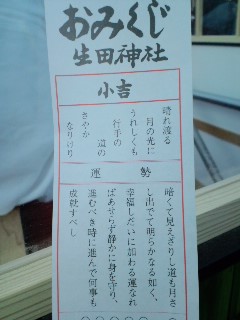 おみくじ
生田神社
小吉
晴れ渡る
月の光に
うれしくも
行手の
道の
さやか
なりけり
運勢
暗くて見えざりし道も月さ
し出でて明らかなる如く、
幸福しだいに加わる運なれ
ばあせらず静かに身を守り、
進むべき時に進んで何事も
成就すべし